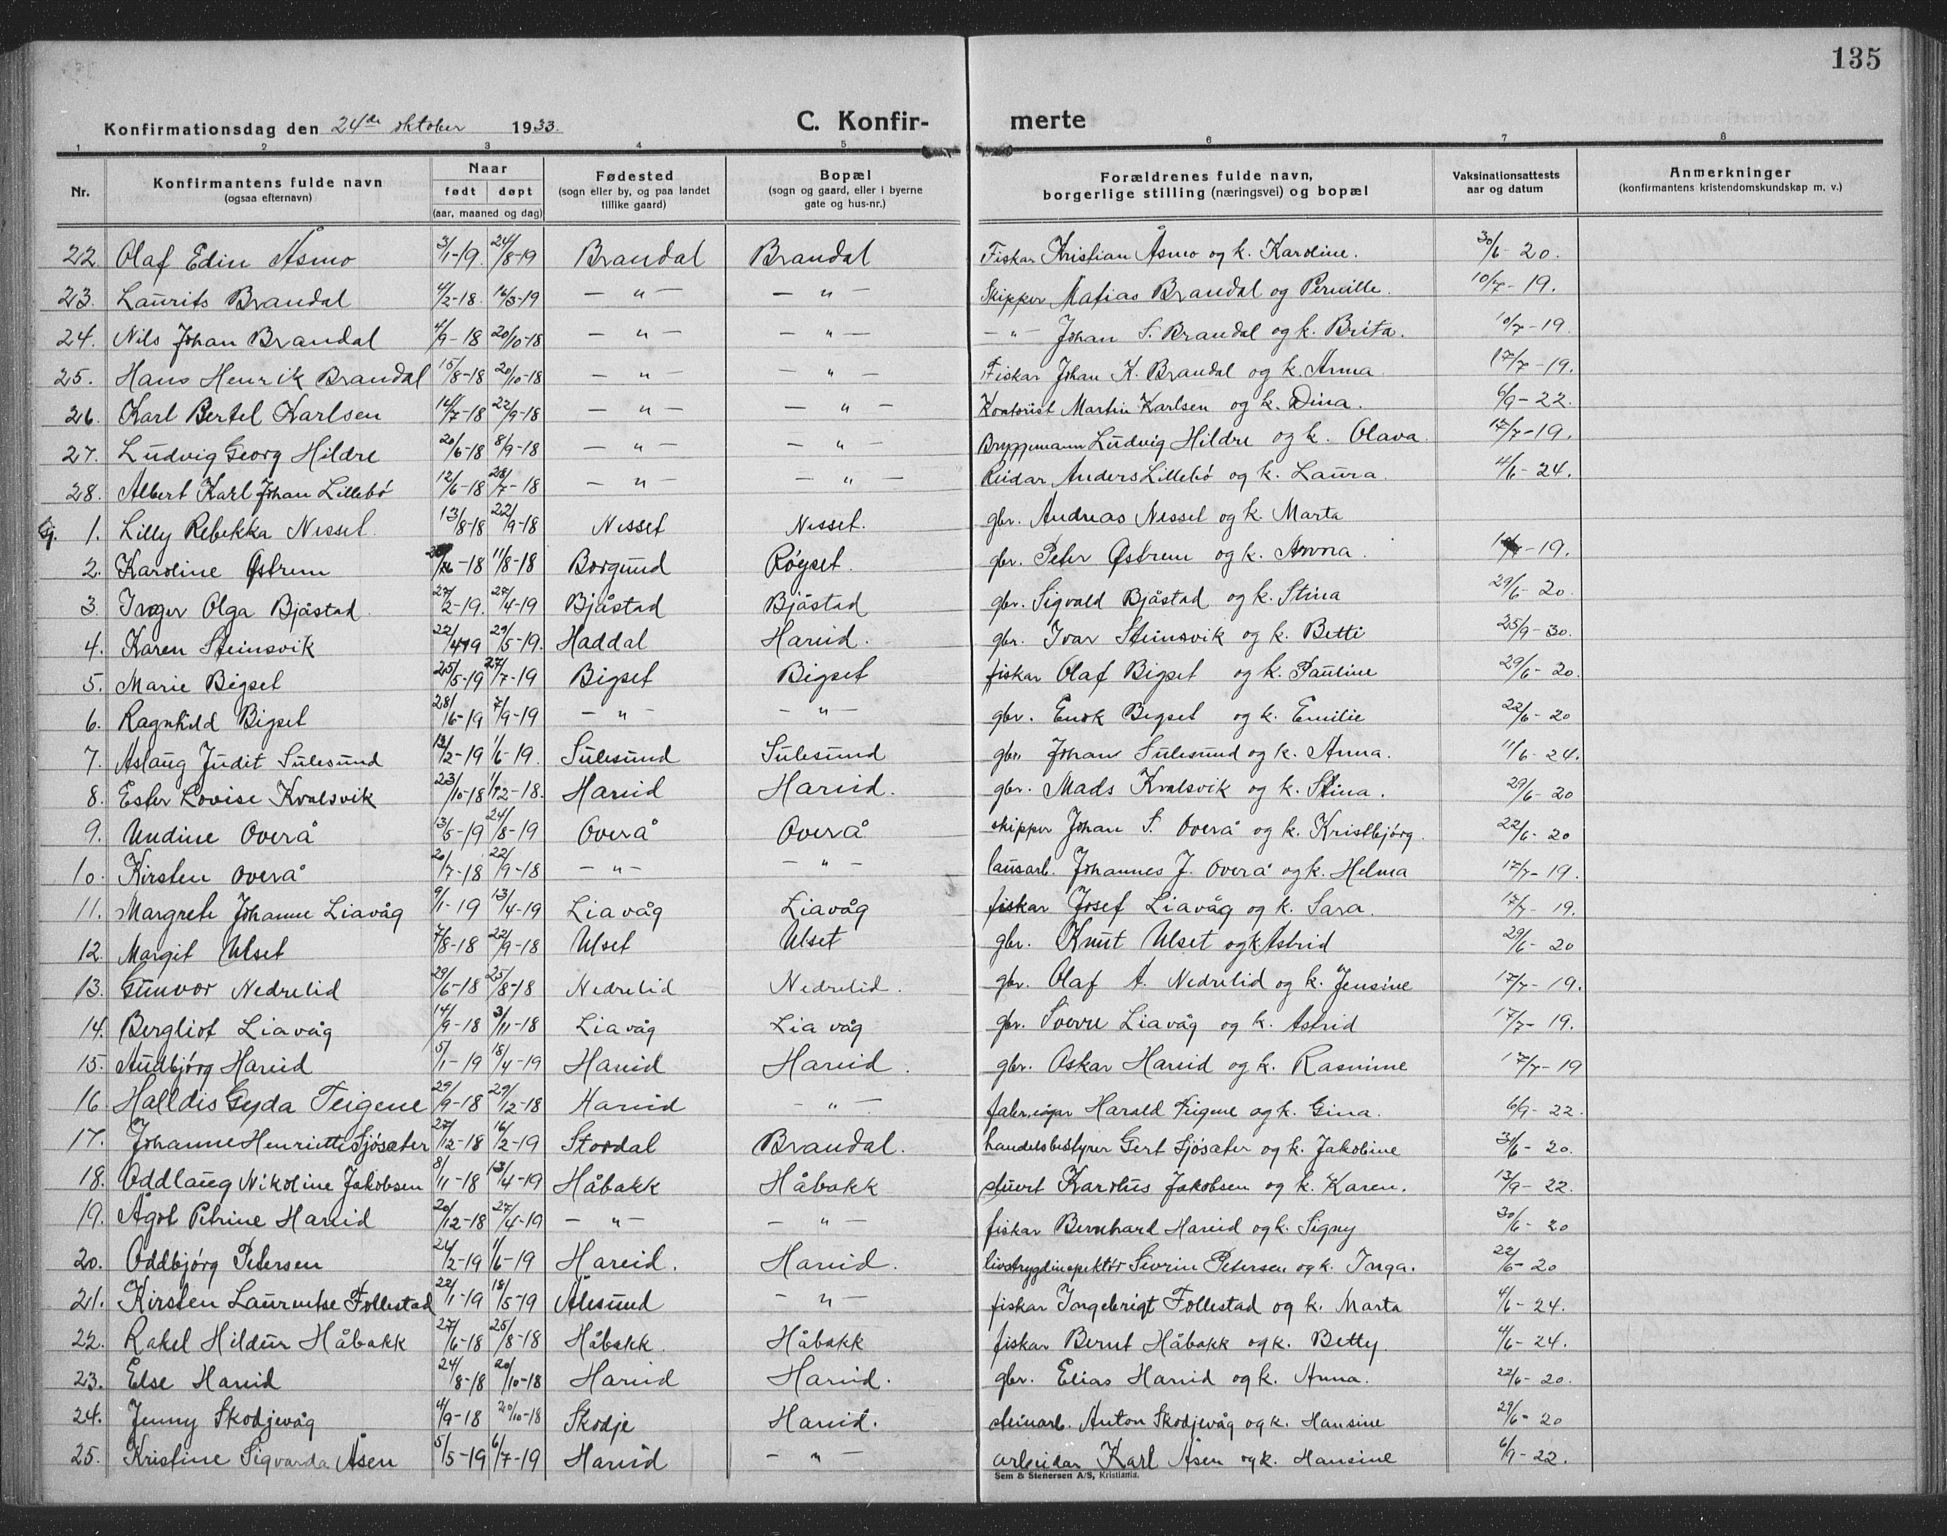 135
Konfirmationsdag den 24de oktober 1933. C. Konfir- merte
1 2 3 4 5 6 7 8
Nr. Konfirmantens fulde navn (ogsaa efternavn) Naar født døpt (aar, maaned og dag) Fødested (sogn eller by, og paa landet tillike gaard) Bopæl (sogn og gaard, eller i byerne gate og hus-nr.) Forældrenes fulde navn, borgerlige stilling (næringsvei) og bopæl Vaksinationsattests aar og datum Anmerkninger (konfirmantens kristendomskundskap m. v.)
22. Olaf Edin Åsmo 3/1-19. 24/8-19 Brandal Brandal Fiskar Kristian Åsmo og k. Karoline. 30/6-20.
23. Laurits Brandal 4/2-18. 16/3-19 — " — — " — Skipper Matias Brandal og Pernille. 10/7-19.
24. Nils Johan Brandal 4/9-18 20/10-18 — " — — " — — " — Johan S. Brandal og k. Brita. 10/7-19.
25. Hans Henrik Brandal 15/8-18 20/10-18 — " — — " — Fiskar Johan K. Brandal og k. Anna. 17/7-19.
26. Karl Bertel Karlsen 14/7-18 22/9-18 — " — — " — Kontorist Martin Karlsen og k. Dina. 6/9-22.
27. Ludvig Georg Hildre 20/6-18 8/9-18 — " — — " — Bryggemann Ludvig Hildre og k. Olava. 17/7-19.
28. Albert Karl Johan Lillebø 12/6-18 28/7-18 — " — — " — Reidar Anders Lillebø og k. Laura. 4/6-24.
Gj. 1. Lilly Rebekka Nesset. 13/8-18 22/9-18 Nesset Nesset. gbr. Andreas Nesset og k. Marta
2. Karoline Østrem -18 11/8-18 Borgund Røyset. gbr. Peter Østrem og k. Anna. -19.
3. Inger Olga Bjåstad. 27/2-19. 27/4-19 Bjåstad Bjåstad gbr. Sigvald Bjåstad og k. Stina 29/6-20.
4. Karen Steinsvik 22/4-19 29/5-19. Haddal Hareid. gbr. Ivar Steinsvik og k. Betti 25/9-30.
5. Marie Bigset 25/5-19 27/7-19 Bigset Bigset fiskar Olaf Bigset og k. Pauline 29/6-20.
6. Ragnhild Bigset 28/6-19 7/9-19 — " — — " — gbr. Enok Bigset og k. Emilie 22/6-20
7. Aslaug Judit Sulesund 12/2-19 1/6-19. Sulesund Sulesund gbr. Johan Sulesund og k. Anna. 11/6-24.
8. Ester Lovise Kvalsvik 23/10-18 1/12-18. Hareid Hareid. gbr. Mads Kvalsvik og k. Stina. 29/6-20
9. Undine Overå 13/5-19 24/8-19 Overå Overå skipper Johan S. Overå og k. Kristbjørg. 22/6-20
10. Kirsten Overå 20/7-18 22/9-18 — " — — " — lausarb. Johannes J. Overå og k. Helma 17/7-19.
11. Margrete Johanne Liavåg 9/1-19 13/4-19 Liavåg Liavåg fiskar Josef Liavåg og k. Sara. 17/7-19.
12. Margit Ulset 7/8-18 22/9-18 Ulset Ulset gbr. Knut Ulset og k Astrid 29/6-20
13. Gunvor Nedrelid 29/6-18 25/8-18 Nedrelid Nedrelid. gbr. Olaf A. Nedrelid og k. Jensine 17/7-19.
14. Bergliot Liavåg 14/9-18 3/11-18 Liavåg Liavåg gbr. Sverre Liavåg og k. Astrid 17/7-19.
15. Audbjørg Hareid 5/1-19 18/4-19 Hareid Hareid. gbr. Oskar Hareid og k. Rasmine 17/7-19
16 Halldis Gyda Teigene 29/9-18 29/12-18 Hareid — " — Harald Teigene og k. Gina. 6/9-22.
17. Johanne Henriette Sjøsæter 27/12-18 16/2-19 Stordal Brandal. handelsbestyrer Gert Sjøsæter og k. Jakobine 30/6-20.
18. Oddlaug Nikoline Jakobsen 8/11-18 13/4-19 Håbakk Håbakk stuert Karolus Jakobsen og k. Karen. 13/9-22.
19. Ågot Petrine Hareid 20/12-18 27/4-19 — " — — " — fiskar Bernhard Hareid og k. Signy 30/6-20
20. Oddbjørg Petersen 24/2-19 1/6-19 Hareid. Hareid. livstrygdinspektør Severin Petersen og k. Inga. 22/6-20
21. Kirsten Laurentse Follestad 22/1-19 18/5-19 Ålesund — " — fiskar Ingebrigt Follestad og k. Marta 4/6-24.
22. Rakel Hildur Håbakk 27/6-18 25/8-18 Håbakk. Håbakk fiskar Bernt Håbakk og k. Betty. 4/6-24.
23. Else Hareid 24/8-18 20/10-18 Hareid Hareid. gbr. Elias Hareid og k. Anna. 22/6-20.
24. Jenny Skodjevåg 4/9-18 20/10-18 Skodje Hareid. steinarb. Anton Skodjevåg og k. Hansine 29/6-20
25. Kristine Sigvarda Åsen 5/5-19 6/7-19 Hareid — " — arbeidar Karl Åsen og k. Hansine 6/9-22.
Sem & Stenersen A/S, Kristiania.